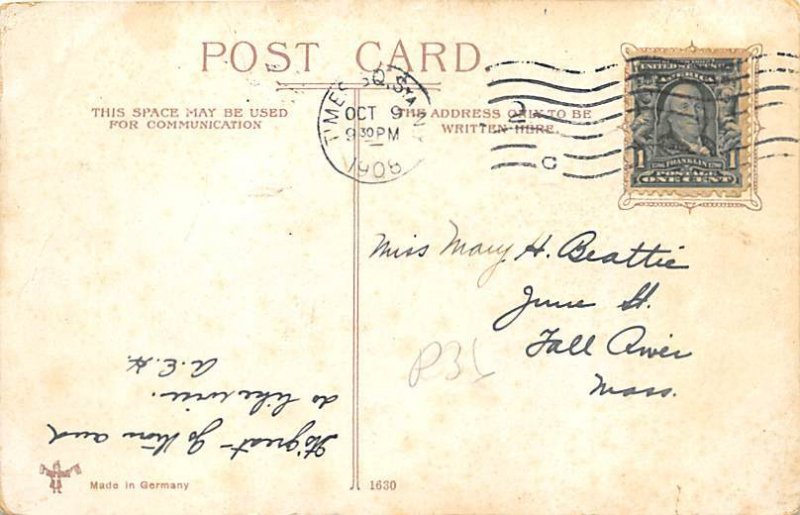 POST CARD.
THIS SPACE MAY BE USED
FOR COMMUNICATION
THE ADDRESS ONLY TO BE
WRITTEN HERE.
TIMES SQ. STA
OCT 9
9 30 PM
1908
UNITED STATES OF
AMERICA
1 FRANKLIN 1
POSTAGE
ONE CENT
Miss Mary H. Beattie
June St.
Fall River
Mass.
P35
It's great - Go thou and
do likewise.
A.E.H.
Made in Germany
1630